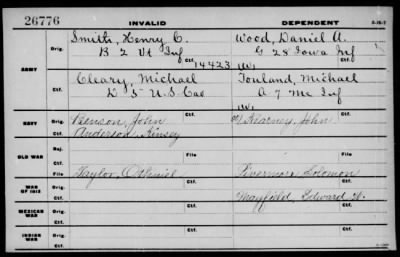 26776 INVALID DEPENDENT
Smith, Henry C. Wood, Daniel A.
Orig. B 2 Vt Inf G 28 Iowa Inf
Ctf. 14423 W.
ARMY
Cleary, Michael Michael
Orig. D 5 U.S. Cav A 7 Me Inf
Ctf. W.
NAVY Orig. Benson, John Kearney, John
Ctf. Anderson, Kinsey
OLD WAR
File File
Taylor, Solomon
WAR OF 1812 Orig.
Ctf. Mayfield, Edward W.
MEXICAN WAR Orig.
Ctf.
INDIAN WAR Orig.
Ctf.